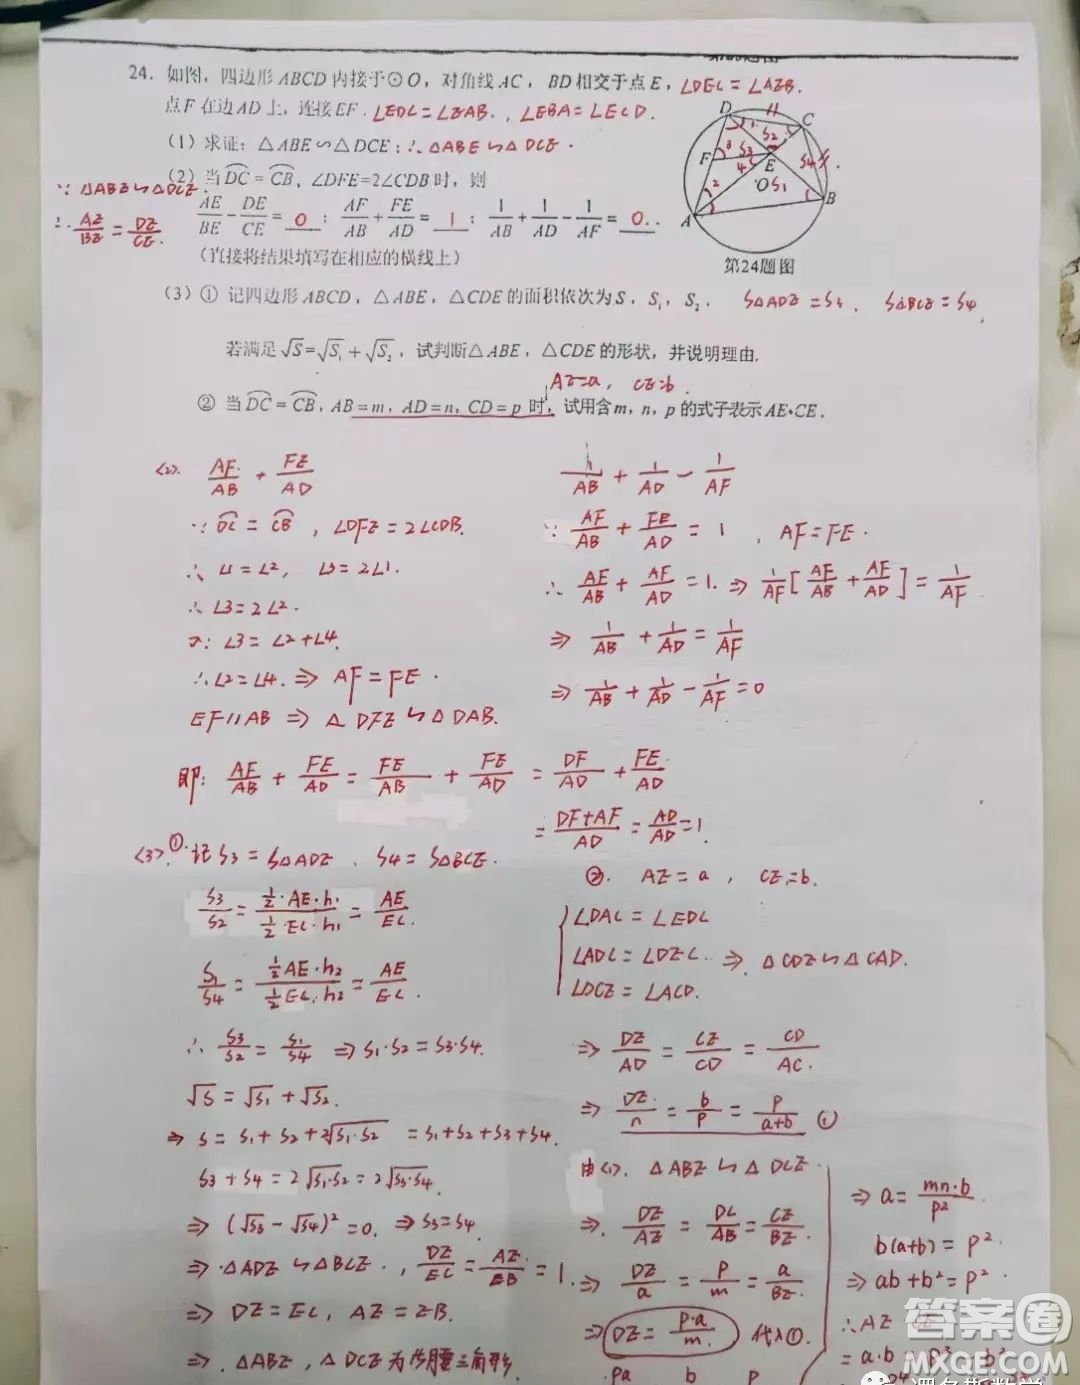 24. 如图，四边形ABCD内接于⊙O，对角线AC，BD相交于点E，∠DEC = ∠AEB.
点F在边AD上，连接EF. ∠EDC = ∠EAB. , ∠EBA = ∠ECD.
(1) 求证：△ABE∽△DCE; ∴ △ABE ∽ △DCE.
(2) 当DC = CB，∠DFE=2∠CDB时，则
∵ △ABE ∽ △DCE.
∴ AE/BE = DE/CE.
AE/BE - DE/CE = 0 ; AF/AB + FE/AD = 1 ; 1/AB + 1/AD - 1/AF = 0.
(直接将结果填写在相应的横线上)
D C F E A B O S₁ S₂ S₃ S₄ 1 2 3 4
第24题图
(3) ① 记四边形ABCD，△ABE，△CDE的面积依次为S，S₁，S₂， S△ADE = S₃. S△BCE = S₄.
若满足√S = √S₁ + √S₂，试判断△ABE，△CDE的形状，并说明理由.
AE=a, CE=b.
② 当DC = CB，AB=m，AD=n，CD=p时，试用含m，n，p的式子表示AE·CE.
<2>. AF/AB + FE/AD
∵ DC = CB , ∠DFE = 2∠CDB.
∴ ∠1 = ∠2, ∠3 = 2∠1.
∴ ∠3 = 2∠2.
又: ∠3 = ∠2 + ∠4.
∴ ∠2 = ∠4. ⇒ AF = FE.
EF // AB ⇒ △DFE ∽ △DAB.
1/AB + 1/AD - 1/AF
∵ AF/AB + FE/AD = 1 , AF = FE.
∴ AF/AB + AF/AD = 1. ⇒ 1/AF [AF/AB + AF/AD] = 1/AF.
⇒ 1/AB + 1/AD = 1/AF
⇒ 1/AB + 1/AD - 1/AF = 0
即: AF/AB + FE/AD = FE/AB + FE/AD = DF/AD + FE/AD
= DF+AF/AD = AD/AD = 1.
<3>. ① 记 S₃ = S△ADE , S₄ = S△BCE.
S₃/S₂ = ½·AE·h₁/½·EC·h₁ = AE/EC.
S₁/S₄ = ½AE·h₂/½EC·h₂ = AE/EC.
∴ S₃/S₂ = S₁/S₄ ⇒ S₁·S₂ = S₃·S₄.
√S = √S₁ + √S₂.
⇒ S = S₁ + S₂ + 2√S₁·S₂ = S₁ + S₂ + S₃ + S₄.
S₃ + S₄ = 2√S₁·S₂ = 2√S₃·S₄.
⇒ (√S₃ - √S₄)² = 0. ⇒ S₃ = S₄.
⇒ △ADE ∽ △BCE. , DE/EC = AE/EB = 1.
⇒ DE = EC, AE = EB.
⇒ △ABE, △DCE 为等腰三角形
②. AE = a , CE = b.
∠DAC = ∠EDC
∠ADC = ∠DEC ⇒ △CDE ∽ △CAD.
∠DCE = ∠ACD.
⇒ DE/AD = CE/CD = CD/AC.
⇒ DE/n = b/p = p/a+b ①
由<1>. △ABE ∽ △DCE.
⇒ DE/AE = DC/AB = CE/BE.
⇒ DE/a = p/m = a/BE.
⇒ DE = p·a/m. 代入①.
pa b p
⇒ a = mn·b/p².
b(a+b) = p².
⇒ ab + b² = p².
∴ AE·CE
= a·b = p² - b²
答案圈
MXQE.COM